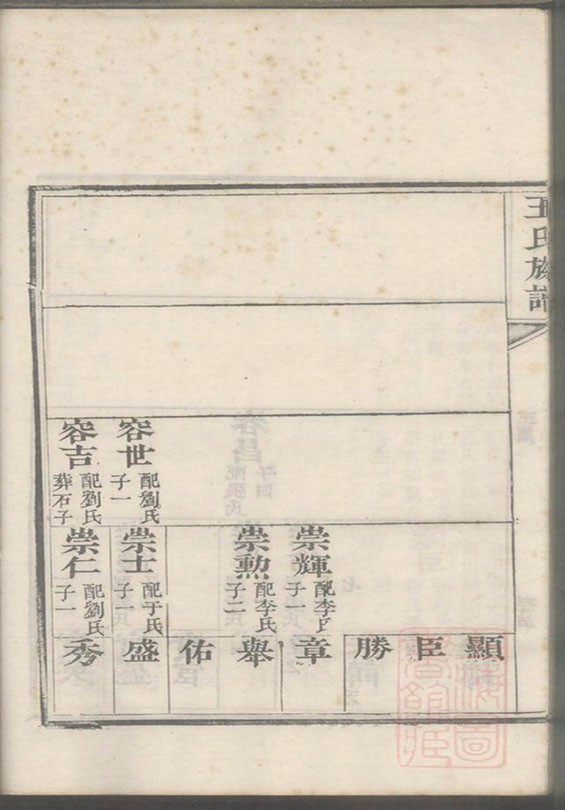 王氏族譜
容世
配劉氏
子一
容吉
配劉氏
葬石子
崇輝
配李氏
子一
崇勲
配李氏
子二
崇士
配于氏
子一
崇仁
配劉氏
子一
顯
臣
勝
章
舉
佑
盛
秀